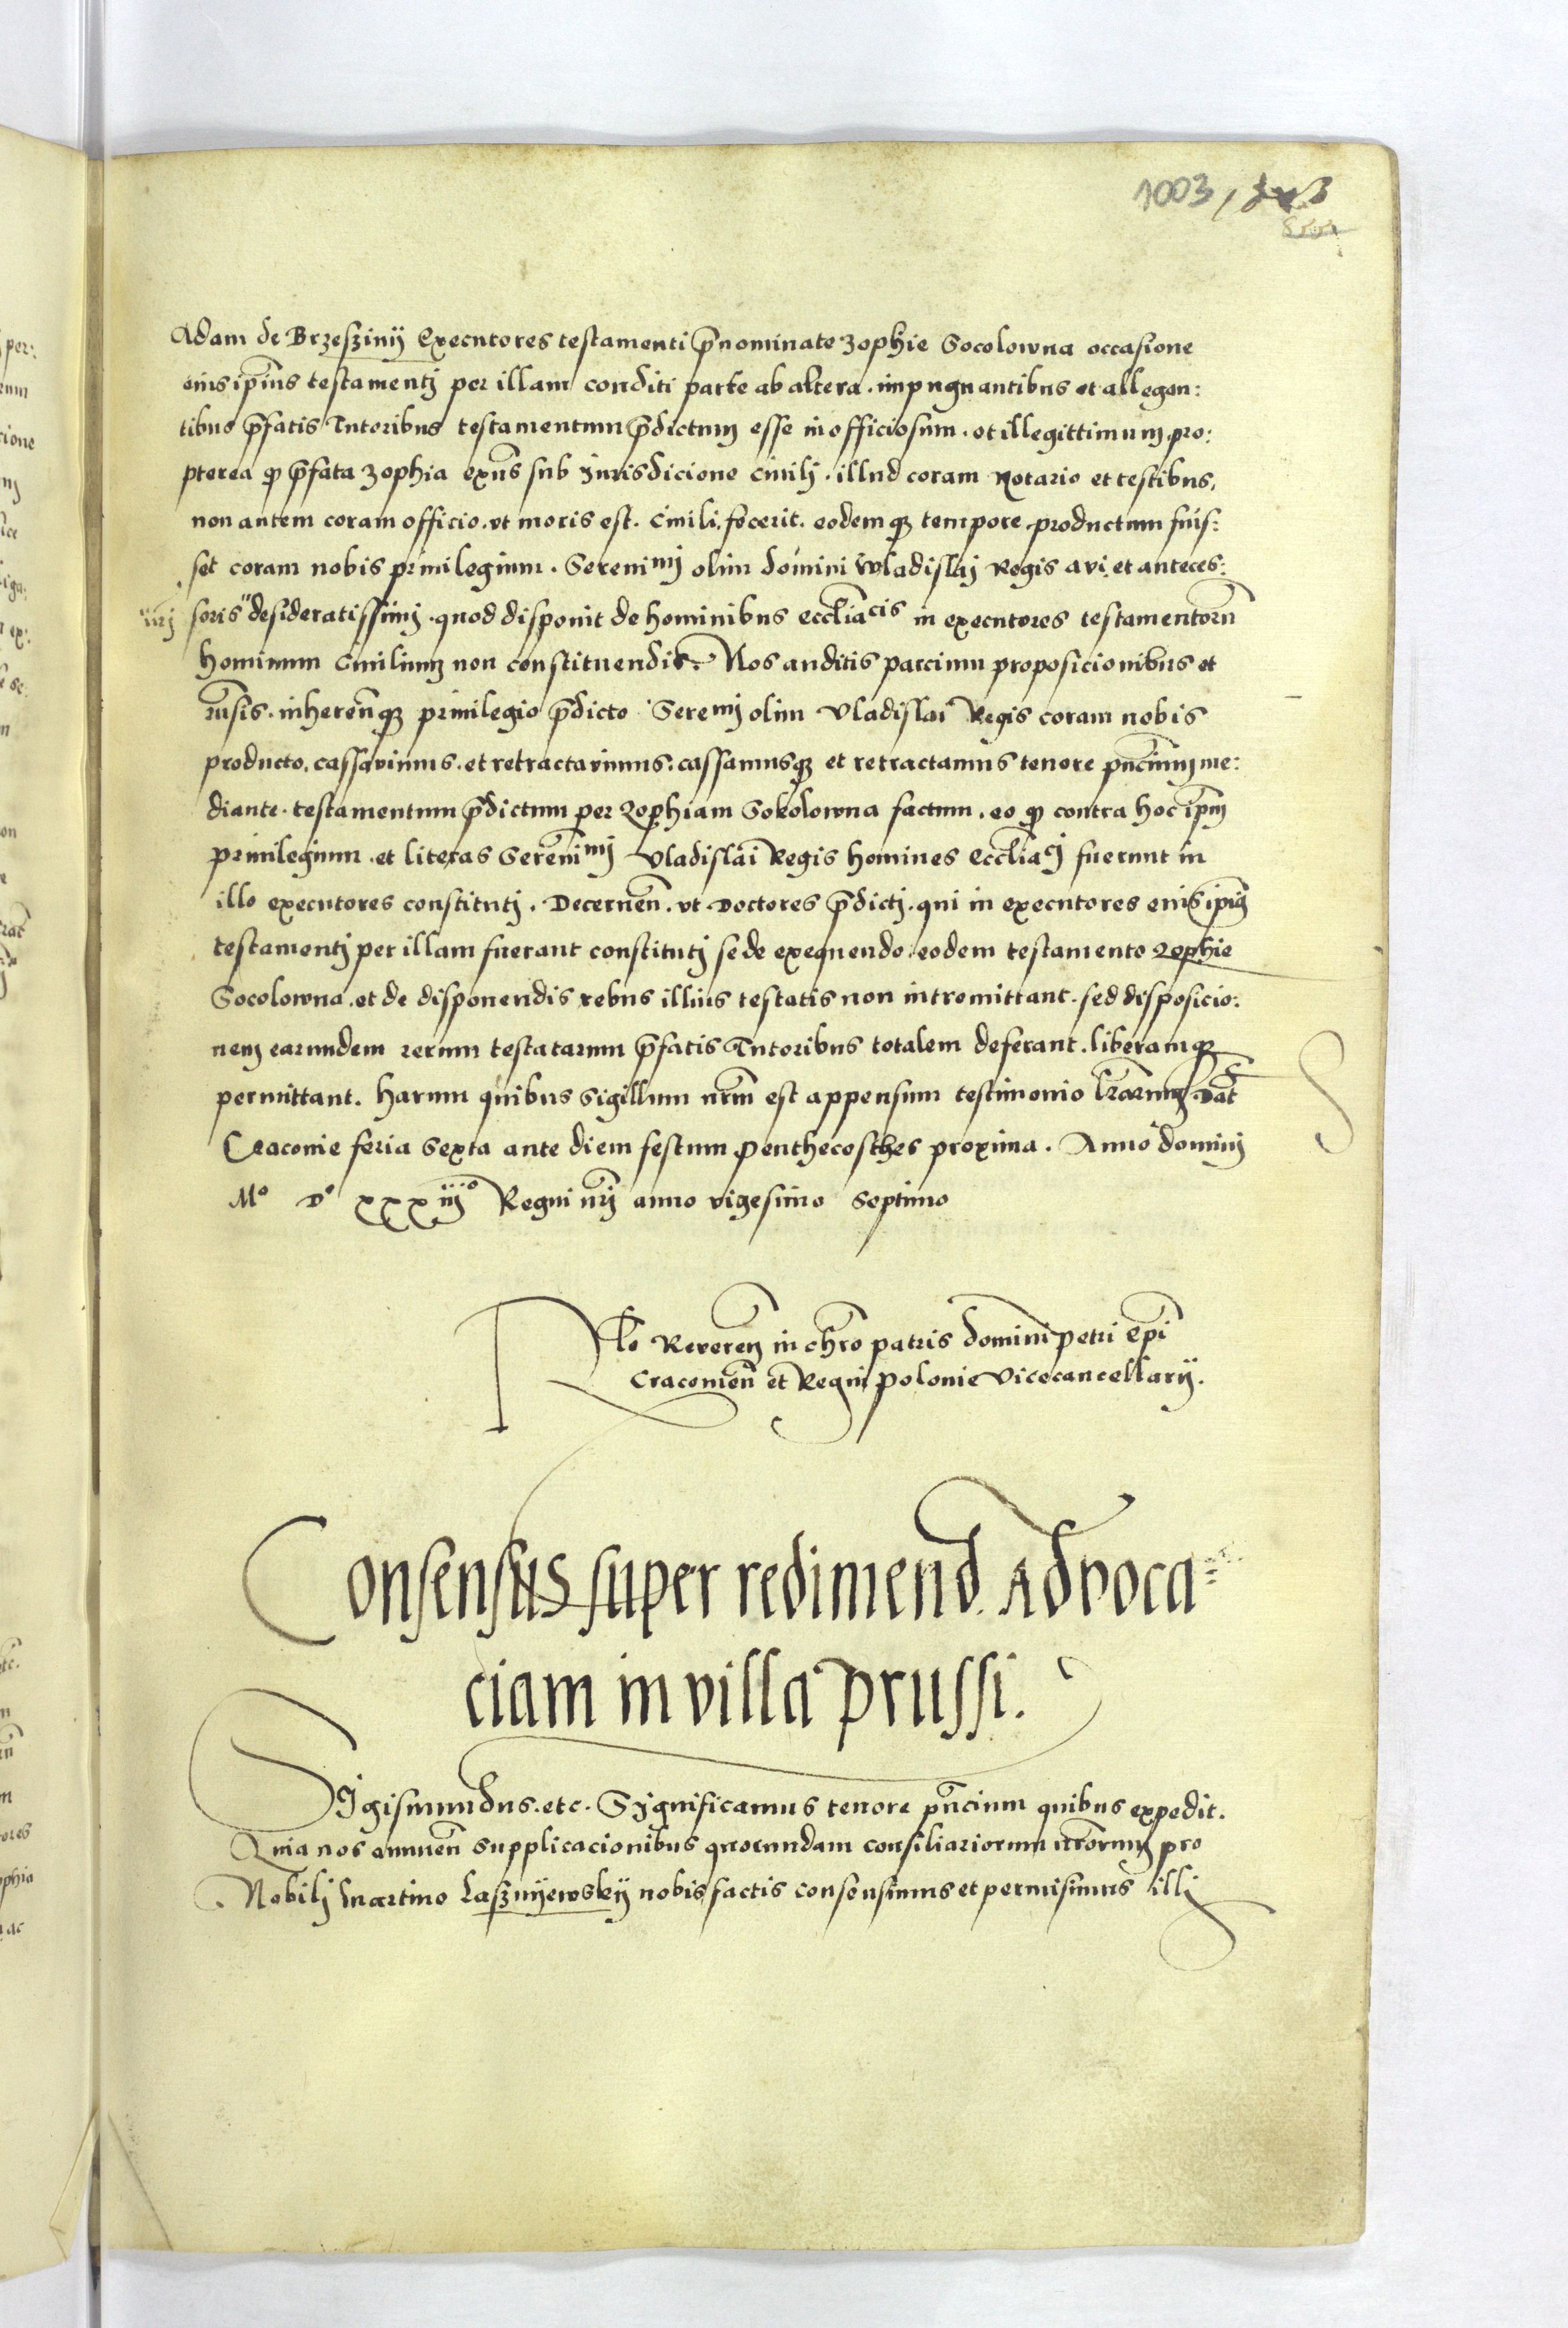 1003,
Adam de Brzeszinÿ Executores testamenti p̄nominate Zophie Socolowna occasione
eius ip̄ius testamentj per illam conditi parte ab altera. impugnantibus et allegan:
tibus p̄fatis Tutoribus testamentum p̄dictum esse inofficiosum. et illegittimum pro:
pterea qͦ p̄fata Zophia exn̄s sub Jurisdicione Ciuilj. illud coram Notario et testibus,
non autem coram officio. vt moris est. Ciuili. fecerit. eodemqꝫ tempore productum fuis:
set coram nobis priuilegium. Sereniᵐⁱ olim domini Wladislaj Regis aui et anteces:
nr̄j soris desideratissimj. quod disponit de hominibus eccl̄iaᶜⁱˢ in executores testamentorū
hominum Ciuilium non constituendis. Nos auditis parcium proposicionibus et
rn̄sis. inheren̄qꝫ priuilegio p̄dicto Sereᵐⁱ olim Vladislai Regis coram nobis
producto, cassauimus. et retractauimus. cassamusqꝫ et retractamus tenore pn̄cium me:
diante. testamentum p̄dictum per Zophiam Sokolowna factum. eo qͦ contra hoc ip̄m
priuilegium. et literas Sereniᵐⁱ Vladislai Regis homines Eccl̄iaᶜʲ fuerunt in
illo executores constitutj. Decernen̄. vt Doctores p̄dictj. qui in executores eius ip̄iꝰ
testamentj per illam fuerant constitutj se de exequendo. eodem testamento Zophie
Socolowna. et de disponendis rebus illius testatis non intromittant. sed disposicio:
nem earundem rerum testatarum p̄fatis Tutoribus totalem deferant. liberamqꝫ
permittant. Harum quibus Sigillum nr̄m est appensum testimonio lr̄arum. Dat̄
Cracouie feria Sexta ante diem festum Penthecosthes proxima. Anno domini
Mº Dº xxxiijº Regni nr̄j anno vigesimo Septimo
Rl̄o Reueren in chr̄o patris domini petri Ep̄i
Cracouien̄ et Regni Polonie Vicecancellarÿ.
Consensus super redimend. Aduoca=
ciam in villa prussi.
Sigismundus. etc. Significamus tenore pn̄cium quibus expedit.
Quia nos annuen̄ Supplicacionibus quorundam consiliariorum nr̄orum pro
Nobilj Martino Lasznÿewskÿ nobis factis consensimus et permisimus illj